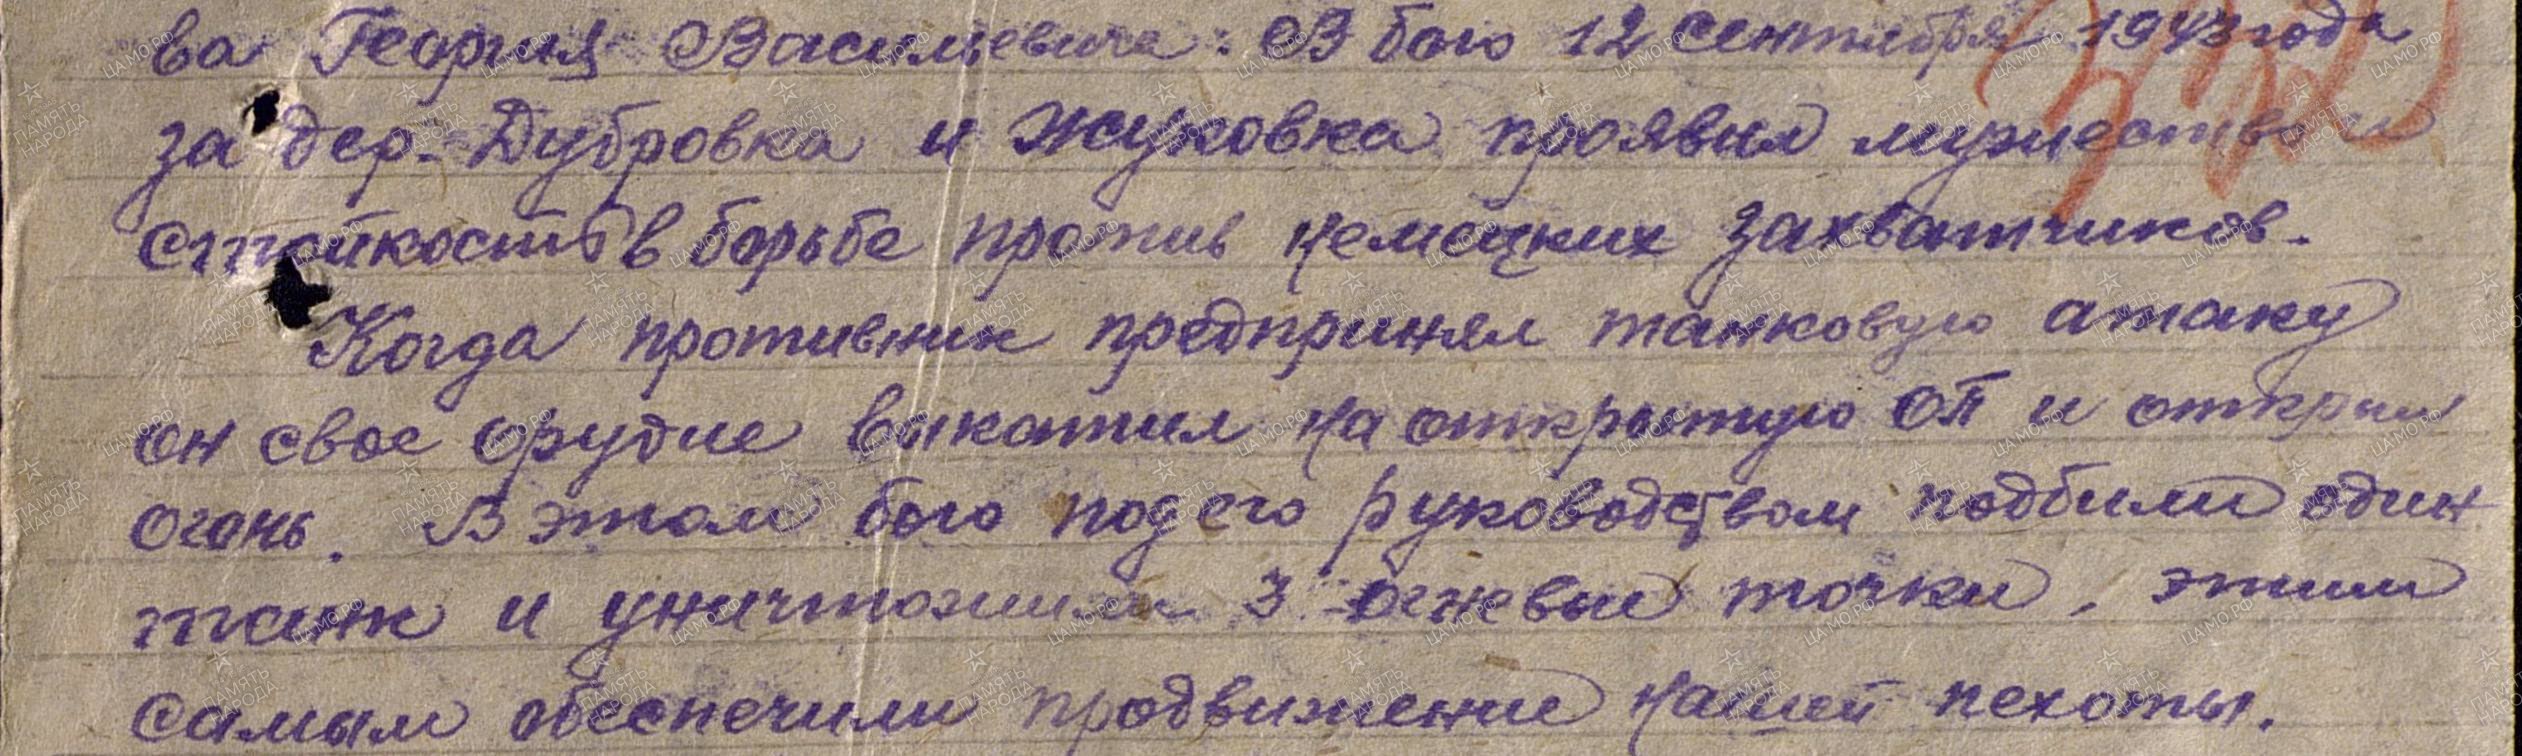 ва Георгия Васильевича: В бою 12 сентября 1943 года
за дер. Дубровка и Жуковка проявил мужество и
стойкость в борьбе против немецких захватчиков.
Когда противник предпринял танковую атаку
он свое орудие выкатил на открытую ОП и открыл
огонь. В этом бою под его руководством подбили один
танк и уничтожили 3 огневые точки, этим
самым обеспечили продвижение нашей пехоты.